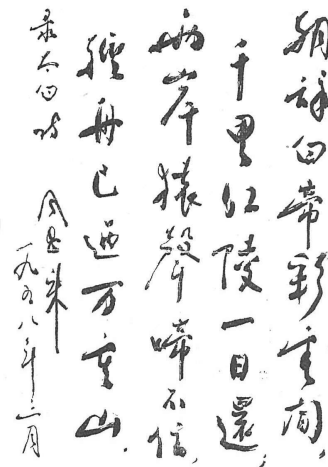 朝辞白帝彩雲间，
千里江陵一日還，
兩岸猿聲啼不住，
輕舟已过万重山.
录太白诗
周恩来
一九五八年三月